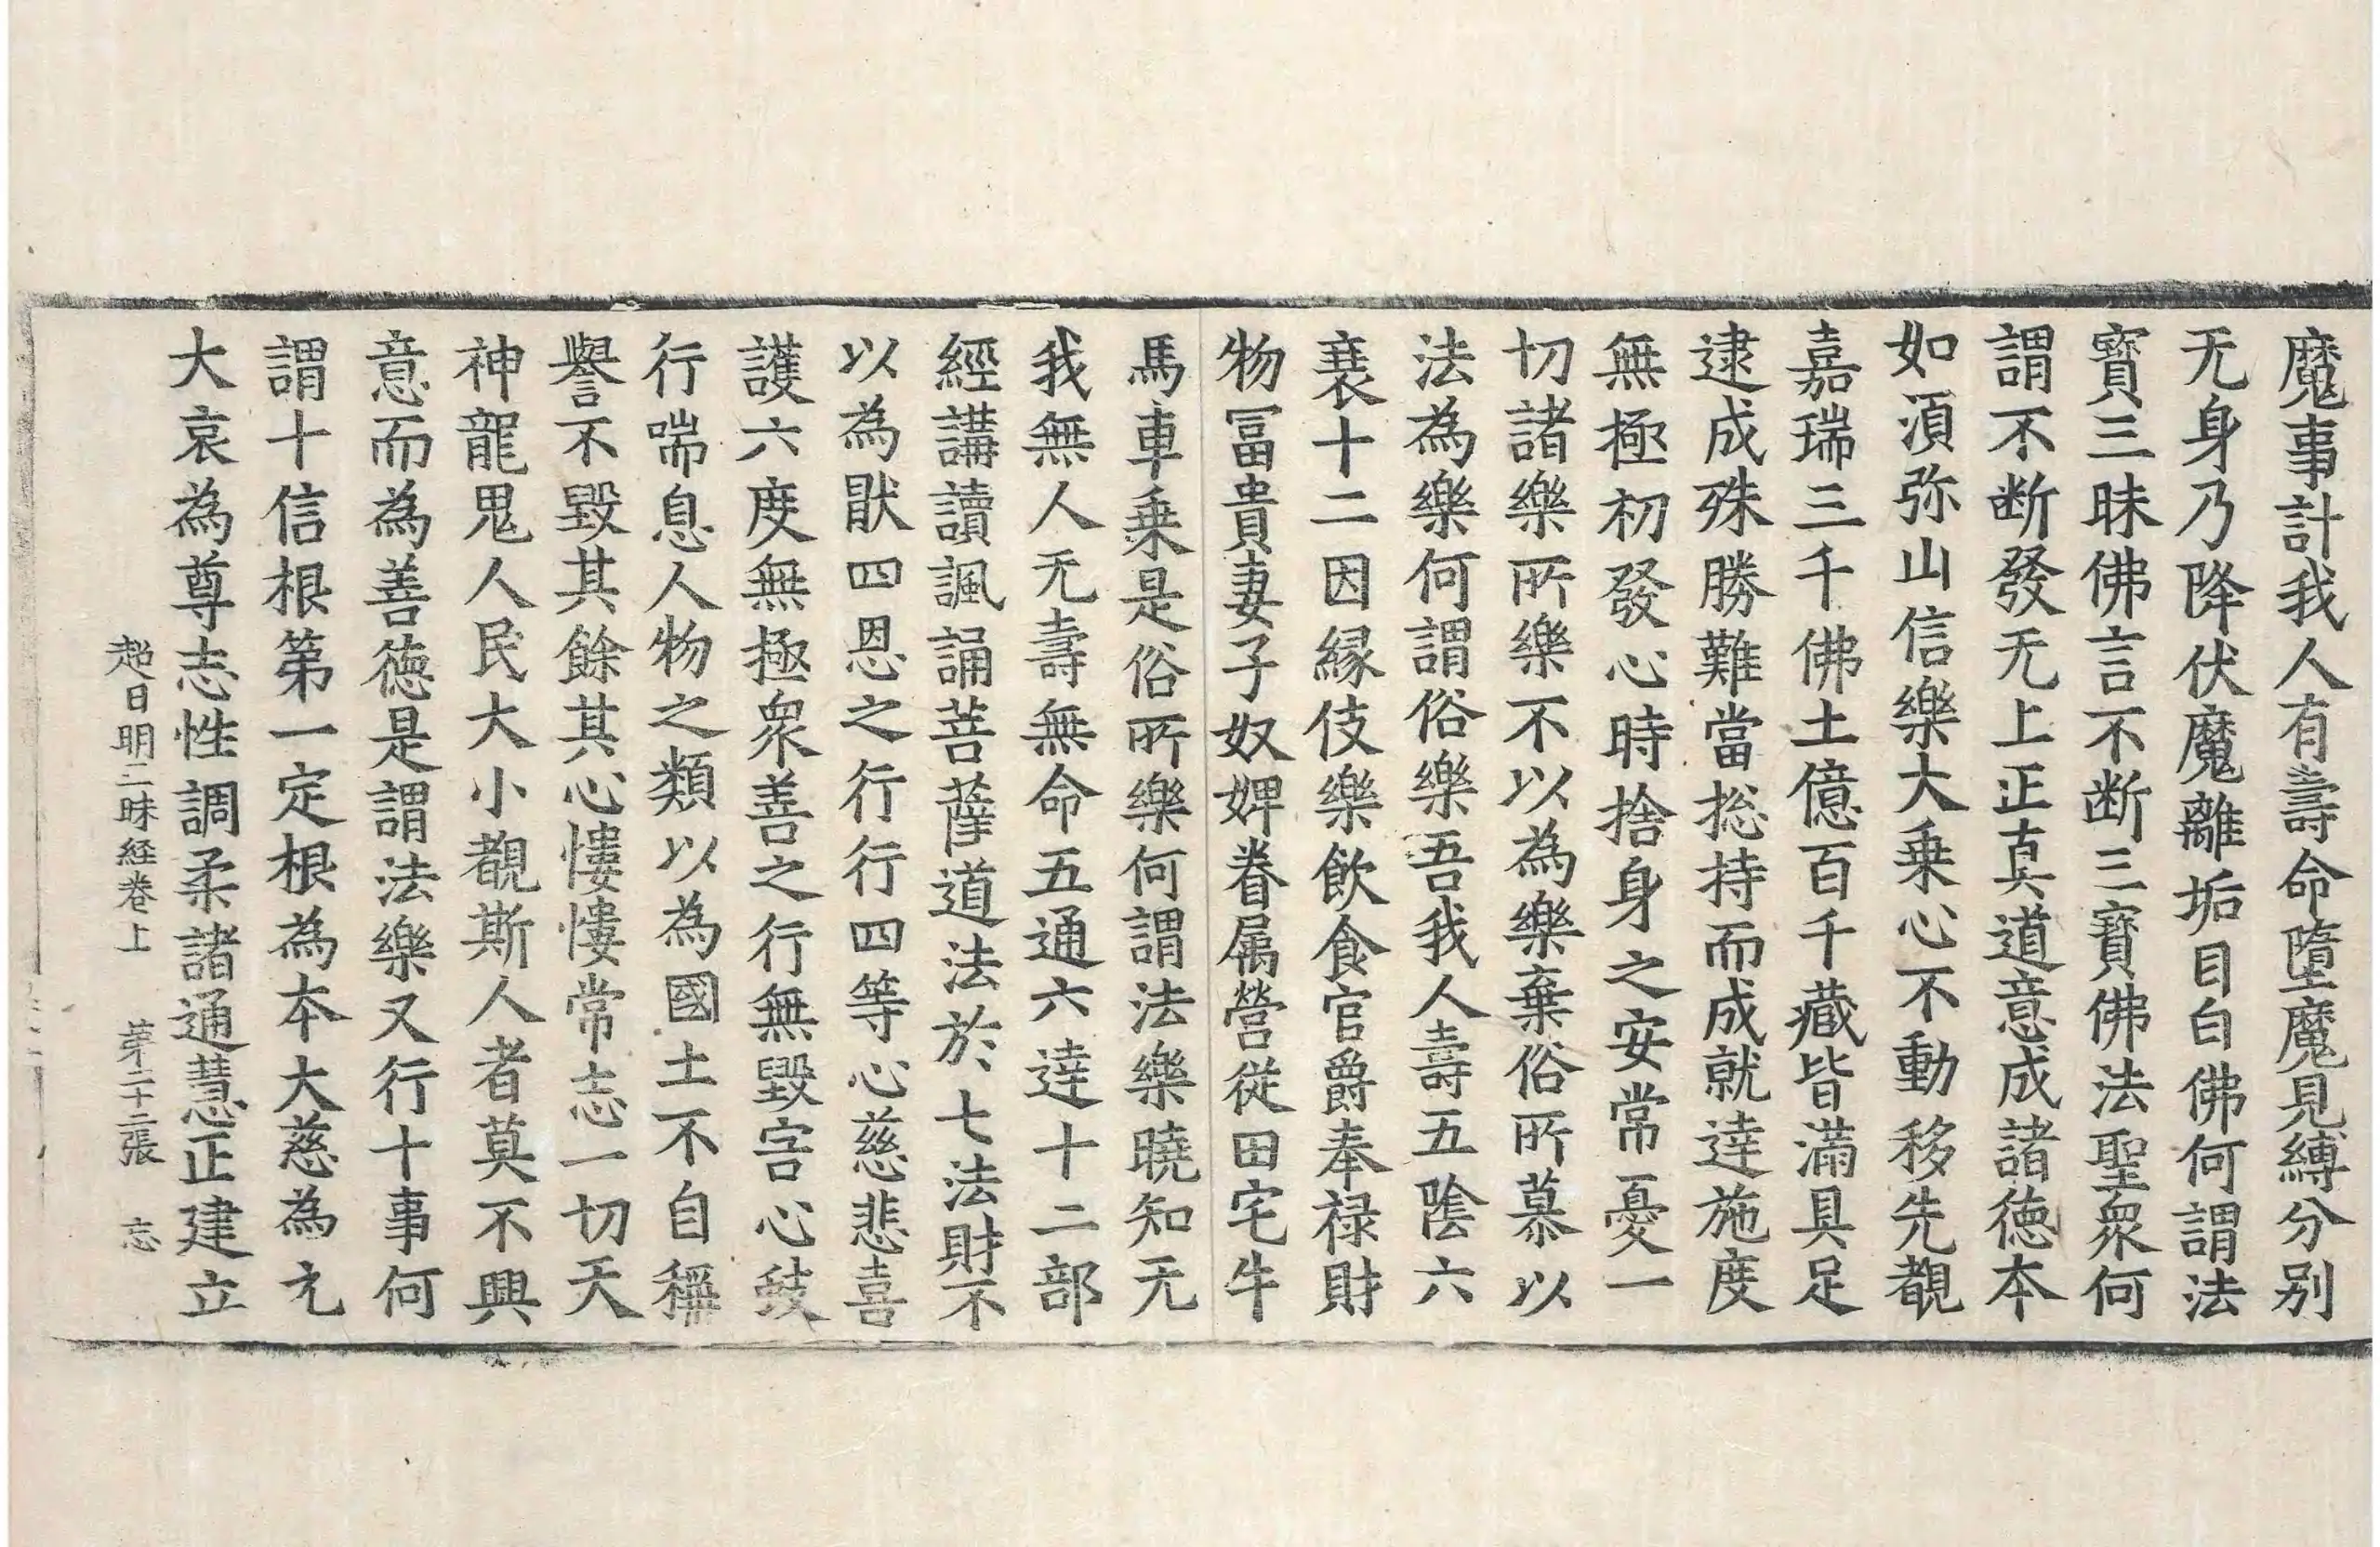 魔事計我人有壽命墮魔見縛分別
无身乃降伏魔離垢目白佛何謂法
寳三昧佛言不断三寳佛法聖衆何
謂不断發无上正真道意成諸德本
如湏弥山信樂大乗心不動移先覩
嘉瑞三千佛土億百千藏皆滿具足
逮成殊勝難當捴持而成就達施度
無極初發心時捨身之安常憂一
切諸樂所樂不以為樂棄俗所慕以
法為樂何謂俗樂吾我人壽五陰六
衰十二因縁伎樂飲食官爵奉禄財
物冨貴妻子奴婢眷属營従田宅牛
馬車乗是俗所樂何謂法樂曉知无
我無人无壽無命五通六達十二部
經講讀諷誦菩薩道法於七法財不
以為猒四恩之行行四等心慈悲喜
護六度無極衆善之行無毀害心蚑
行喘息人物之類以為國土不自稱
譽不毀其餘其心慺慺常志一切天
神龍鬼人民大小覩斯人者莫不興
意而為善德是謂法樂又行十事何
謂十信根第一定根為本大慈為元
大哀為尊志性調柔諸通慧正建立
超日明三昧経卷上　苐二十二張　忘